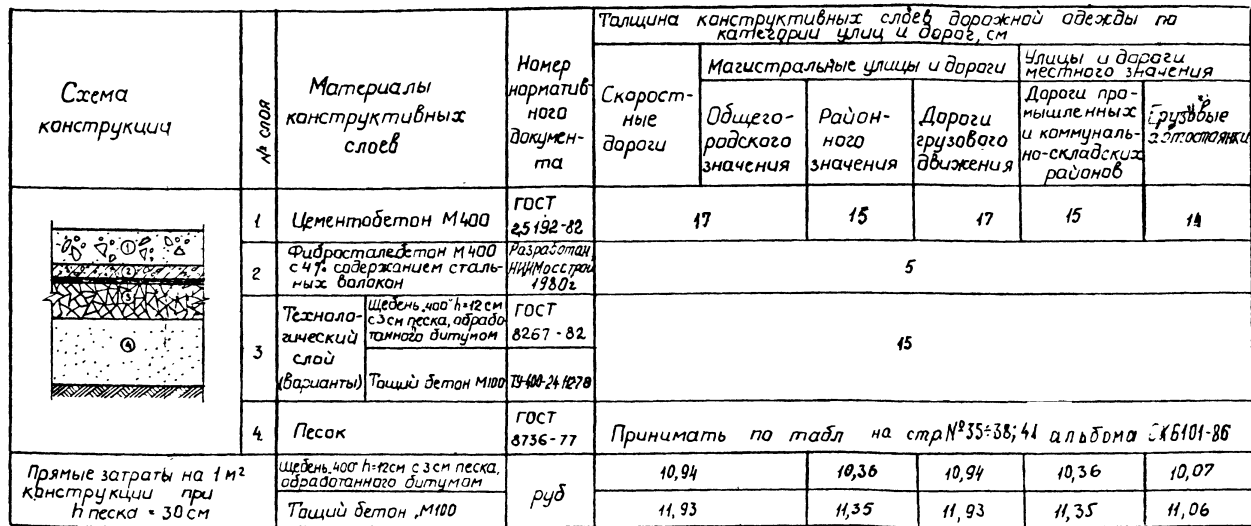 Схема
конструкции
№ слоя
Материалы
конструктивных
слоев
Номер
норматив-
ного
докумен-
та
Толщина конструктивных слоев дорожной одежды по
категории улиц и дорог, см
Скорост-
ные
дороги
Магистральные улицы и дороги
Улицы и дороги
местного значения
Общего-
родского
значения
Район-
ного
значения
Дороги
грузового
движения
Дороги про-
мышленных
и коммуналь-
но-складских
районов
Грузовые
автостоянки
1
2
3
4
1 Цементобетон М400
ГОСТ
25192-82
17 15 17 15 14
2
Фибросталебетон М400
с 4% содержанием сталь-
ных волокон
Разработан
НИИМосстрой
1980г
5
3
Техноло-
гический
слой
(варианты)
Щебень „400" h=12см
с 3см песка, обрабо-
танного битумом
ГОСТ
8267-82
15
Тощий бетон М100
ТУ 400-24-112-78
4 Песок
ГОСТ
8736-77
Принимать по табл на стр №35÷38; 41 альбома СК6101-86
Прямые затраты на 1м²
конструкции при
h песка = 30см
щебень „400" h=12см с 3см песка,
обработанного битумом
руб
10,94 10,36 10,94 10,36 10,07
Тощий бетон „М100
11,93 11,35 11,93 11,35 11,06